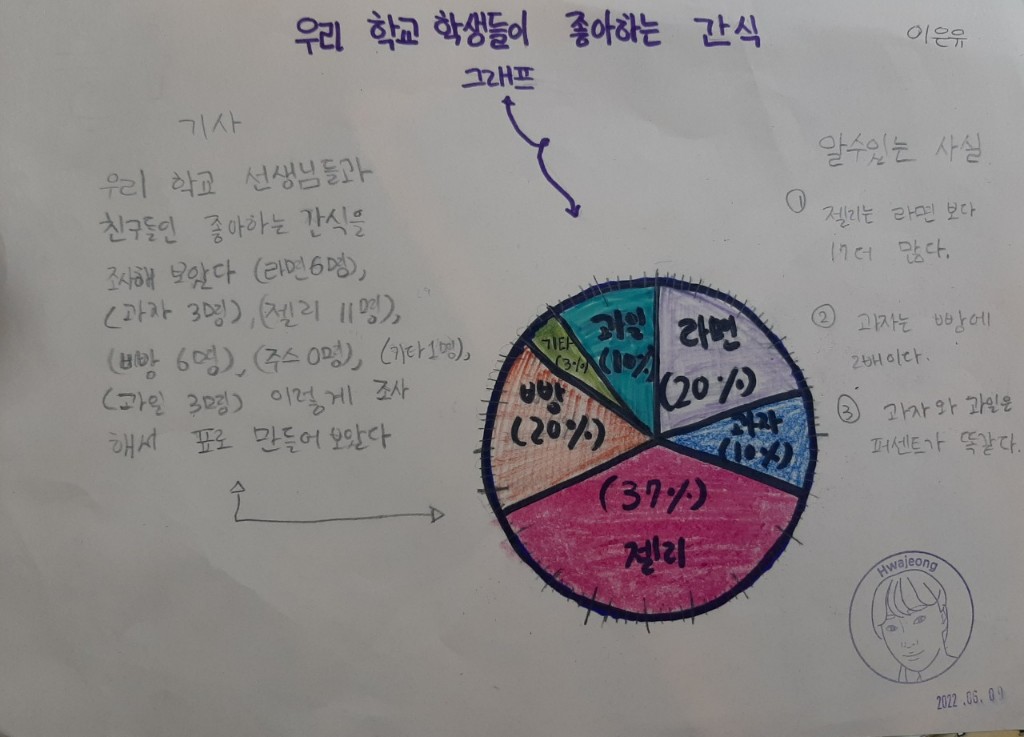 우리 학교 학생들이 좋아하는 간식
그래프
이은유
기사
우리 학교 선생님들과
친구들인 좋아하는 간식을
조사해 보았다 (라면6명),
(과자 3명), (젤리 11명),
(빵 6명), (주스 0명), (기타 1명),
(과일 3명) 이렇게 조사
해서 표로 만들어 보았다
과일
(10%)
라면
(20%)
기타
(3%)
빵
(20%)
과자
(10%)
(37%)
젤리
알수있는 사실
① 젤리는 라면 보다
17더 많다.
② 과자는 빵에
2배이다.
③ 과자와 과일은
퍼센트가 똑같다.
Hwajeong
2022.06.09